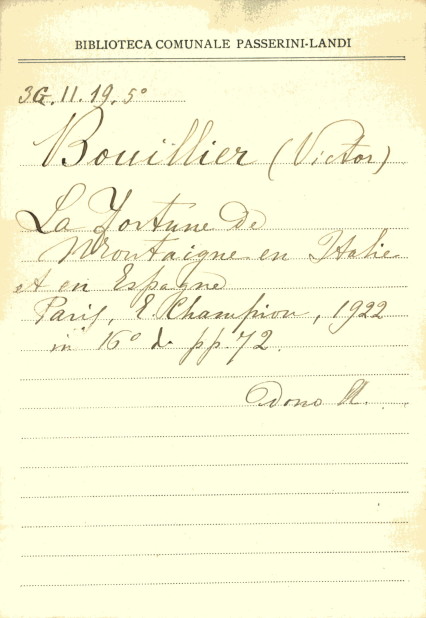 BIBLIOTECA COMUNALE PASSERINI-LANDI
3G.II.19.5°
Bouillier (Victor)
La Fortune de
Montaigne en Italie
et en Espagne
Paris, E. Champion, 1922
in 16° di pp. 72.
Dono M.